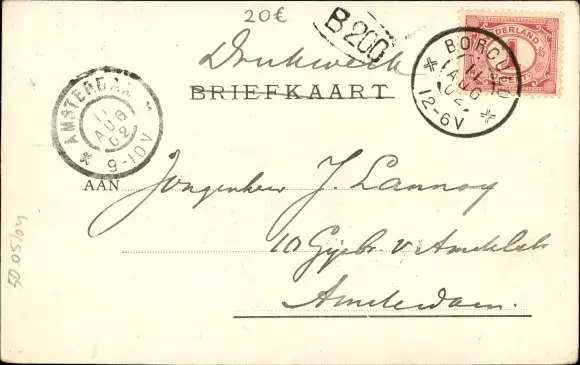 20€
B 200
NEDERLAND
Drukwerk
BRIEFKAART
BORCULO
11
AUG
02
12-6V
AMSTERDAM
11
AUG
02
9-10V
AAN Jongenheer J. Lannoy
10 Gijsbr. v. Amstelstr
Amsterdam.
50.05/04